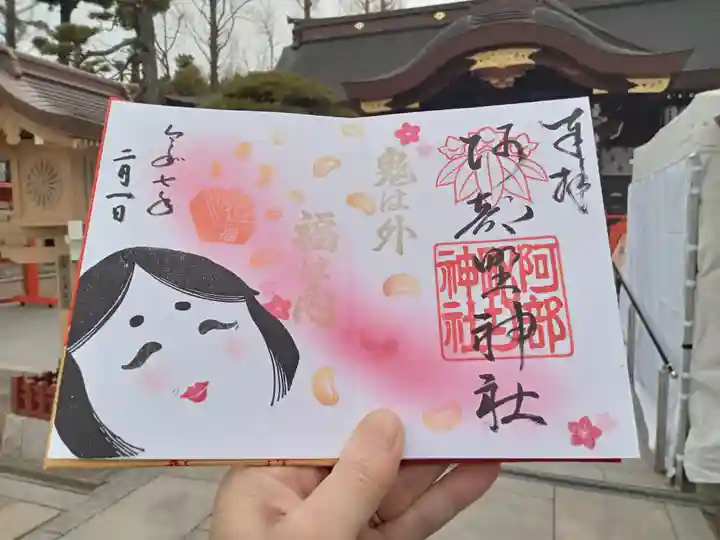 奉拝
阿部野神社
阿部野神社
鬼は外
福は内
令和七年
二月一日